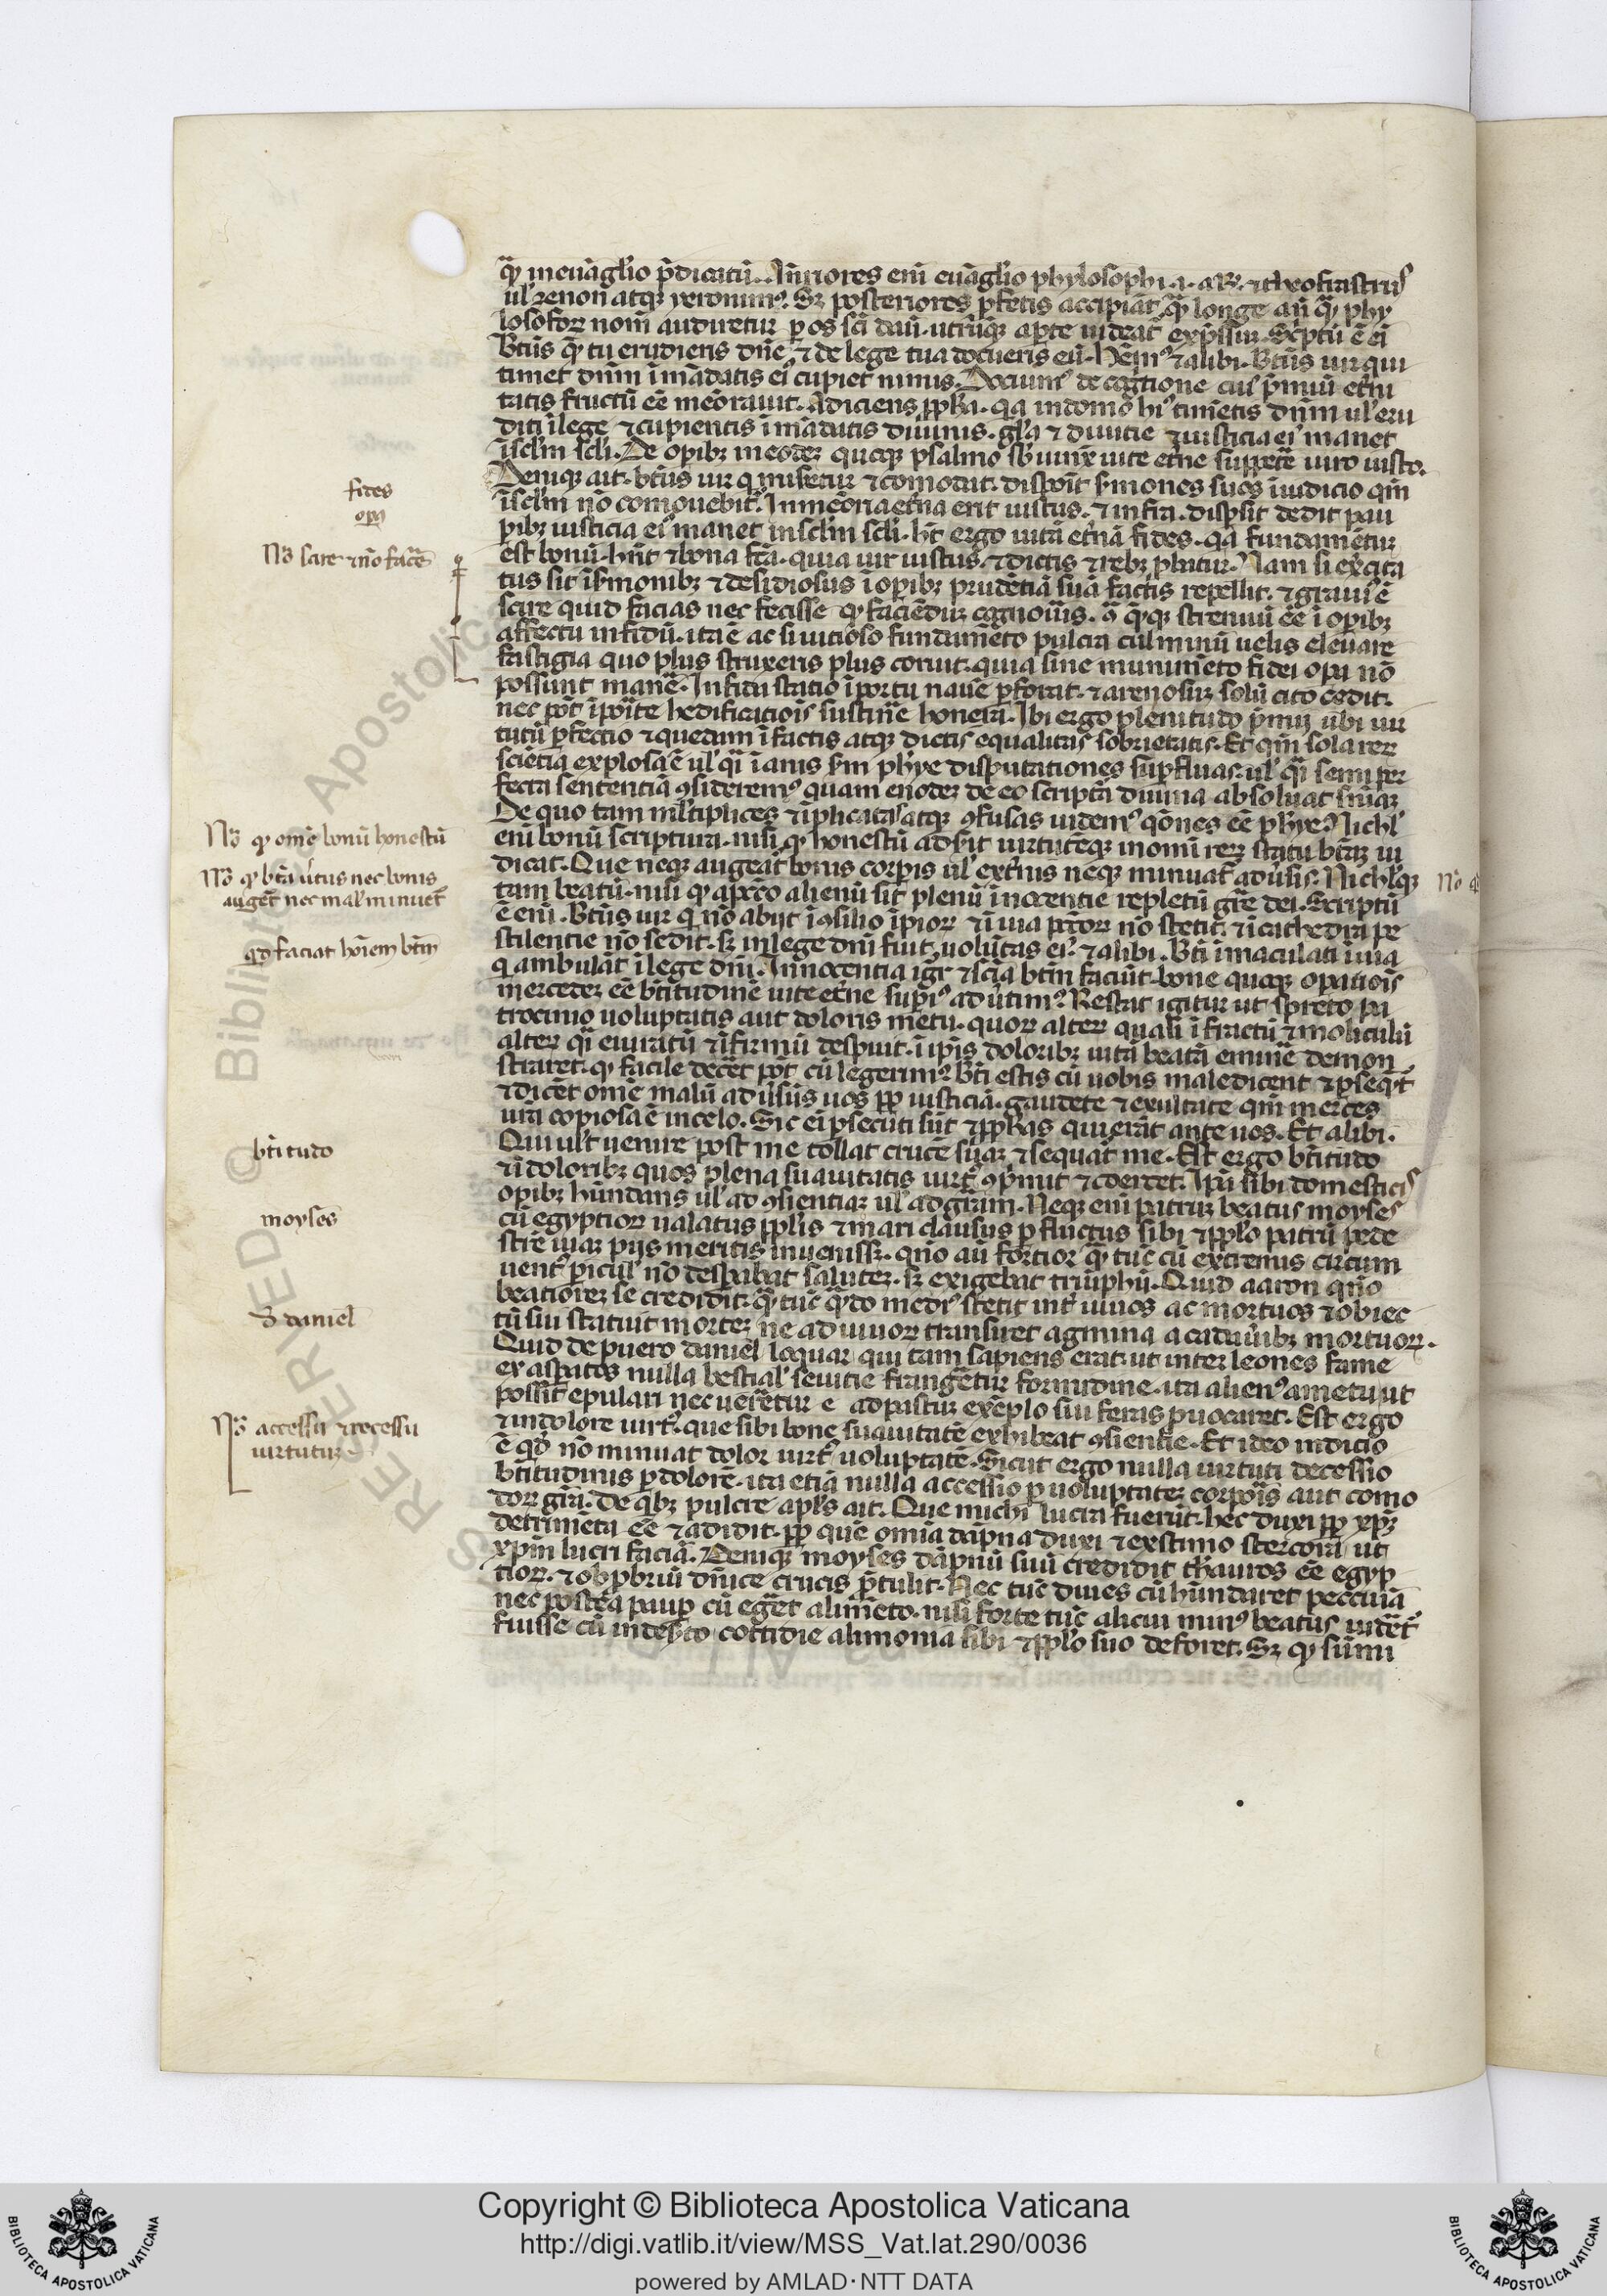 q̄ȝ in euāgl'io p̄dicatū. Anīiores enī euāgl'io phylosophi .i. aR. ⁊ theofrastus
ul' zenon atqȝ yeronimꝰ. Sȝ posteriores ꝓfetis accipiāt q̄ȝ longe an̄ q̄ȝ phy
losofoꝝ nom̄ audiretur ꝑ os sc̄i dauid
Bt̄us q̄ȝ tu erudieris dn̄e, ⁊ de lege tua docueris eū. ⁊ alibi. Bt̄us uir qui
timet dn̄m ī mādatis eiꝰ cupiet nimis. Docuimꝰ de cogtione cuiꝰ p̄miū et̄ni
tatis fructū eē mēorauit. Adiciens ꝓph̄a. q̄a in domo hiꝰ timētis dn̄m ul' eru
diti ī lege ⁊ cupientis ī mādatis diuinis. gl'a ⁊ diuitie ⁊ iusticia eiꝰ manet
ī sclm̄ scl'i. De opibȝ in eodeȝ quoqȝ psalmo uite et̄ne suppetē uiro iusto.
Deniqȝ ait. bt̄us uir q miseretur ⁊ comodat. dispōit s̄mones suos ī iudicio qm̄
ī sclm̄ nō comouebit᷑. In mēoria et̄na erit iustus. ⁊ infra. dispsit dedit pau
ꝑibȝ iusticia eiꝰ manet in sclm̄ scl'i. hȝ ergo uitā et̄nā fides. q̄a fundamētuȝ
est bonū. hn̄t ⁊ bona fc̄a. quia uir iustus. ⁊ dictis ⁊ rebȝ ꝓbatur. Nam si ex̄cita
tus sit ī s̄monibȝ ⁊ desidiosus ī oꝑibȝ prudētiā suā factis repellit. ⁊ grauiꝰ ē
scire quid facias nec fecisse qȝ faciēduȝ cognouis. strenuū eē ī oꝑibȝ
affectu infidū. ita ē ac si uitioso fundamēto pulcra culminū uelis eleuare
fastigia quo plus struxeris plus coruit. quia sine munimēto fidei oꝑa nō
possunt manē. Infida statio ī portu nauē ꝑforat. ⁊ arenosuȝ solū cito cedit.
nec pōt īpōite hedificatiois sustinē honera. Ibi ergo plenitudo p̄mij ubi uir
tutū ꝑfectio ⁊ quedam ī factis atqȝ dictis equalitas sobrietatis. Et qm̄ sola reꝝ
sciētia explosa ē ul' q̄si īanis s̄m phye disputationes suꝑfluas. ul' q̄si semiper
fecta sententia ꝯsideremꝰ quam enodeȝ de eo scriptā diuina absoluat sn̄iaȝ
De quo tam ml'tiplices ⁊ īplicatas atqȝ ꝯfusas uidemꝰ q̄ones eē phye. Nichl'
enī bonū scriptura. nisi qȝ honestū adserit uirtutēqȝ in omī reꝝ statu bt̄aȝ iu
dicat. Que neqȝ augeat᷑ bonis corꝑis ul' ext̄nis neqȝ minuat᷑ adūsis. Nichl'qȝ
tam beatū. nisi qȝ a pctō alienū sit plenū inocentie repletū gr̄e dei. Scriptū
ē enī. Bt̄us uir q nō abijt ī ꝯsilio īpioꝝ ⁊ ī uia pctōꝝ nō stetit. ⁊ ī cathedra pe
stilentie nō sedit. sȝ in lege dn̄i fuit uolūtas eiꝰ. ⁊ alibi. Bt̄i īmaculati ī uia
q ambulāt ī lege dn̄i. Innocentia igr̄ ⁊ sciā bt̄m faciūt. bone quoqȝ oꝑatiōis
mercedeȝ eē bt̄itudinē uite et̄ne suꝑiꝰ adūtimꝰ. Restat igitur ut spreto pa
trocinio uoluptatis aut doloris metu. quoꝝ alteꝝ quasi īfractū ⁊ moliculū
alteꝝ q̄si euiratū ⁊ īfirmū despuit. ī ip̄is doloribȝ uitā beatā eminē demon
straret. qȝ facile docēt pōt cū legerimꝰ. Bt̄i estis cū uobis maledicent ⁊ ꝑseqt᷑
⁊ dicēt omē malū adūsus uos ꝓp iusticiā. gaudete ⁊ exultate qm̄ merces
ura copiosa ē in celo. Sic enī ꝑsecuti sūt ⁊ ꝓph̄as qui erāt ante uos. Et alibi.
Qui uult uenire post me tollat crucē suaȝ ⁊ sequat᷑ me. Est ergo bt̄itudo
⁊ ī doloribȝ quos plena suauitatis uirtꝰ ꝯprimit ⁊ coercet. Ipa sibi domesticꝰ
opibȝ hūndans ul' ad ꝯsientiaȝ ul' ad gr̄am. Neqȝ enī paruȝ beatus moyses
cū egyptioꝝ ualatus ppl'is ⁊ mari clausus ꝑ fluctus sibi ⁊ ppl'o patrū pede
strē uiaȝ pijs meritis inuenissȝ. qn̄o au fortior q̄ȝ tūc cū extremis circum
uentꝰ ꝑicul' nō desꝑabat saluteȝ. sȝ exigebat triūphū. Quid aaron qn̄o
beatioreȝ se credidit. q̄ȝ tūc q̄do mediꝰ stetit int̄ uiuos ac mortuos ⁊ obiec
tū sui statuit morteȝ ne ad uiuoꝝ transiret agmina a cadaūibȝ mortuoꝝ.
Quid de puero daniel loquar qui tam sapiens erat. ut inter leones fame
exasꝑatos nulla bestial' seuitie frangeretur formidine. ita alienꝰ a metu ut
possit epulari nec ueretur e ad pastuȝ exēplo sui feras ꝓuocaret. Est ergo
⁊ in dolore uirtꝰ. que sibi bone suauitatē exhibeat ꝯsientie. Et ideo indicio
ē qd nō minuat dolor uirtꝰ uoluptatē. Sicut ergo nulla uirtuti decessio
bt̄itudinis ꝑ dolorē. ita etiā nulla accessio ꝑ uoluptateȝ corꝑis aut como
doꝝ grā. de qbȝ pulcre apl's ait. Que michi lucra fuerūt. hec duxi ꝓp xp̄ȝ
detrimēta eē ⁊ adidit. ꝓp quē omia dāpna duxi ⁊ existimo stercora ut
xp̄m lucri faciā. Deniqȝ moyses dāpnū suū credidit thauros eē egyp
tioꝝ. ⁊ obꝓbriū dn̄ice crucis p̄tulit. Nec tūc diues cū hūndaret peccunia
nec postea pauꝑ cū egēt alimēto. nisi forte tūc alicui minꝰ beatus uidet᷑
fuisse cū in deserto cottidie alimonia sibi ⁊ ppl'o suo deforet. Sȝ qȝ sūmi
fides
opa
Nō scire ⁊ nō facē
Nō qȝ omē bonū honestū
Nō qȝ bt̄a ūtus nec bonis
auget᷑ nec mal' minuet᷑
qd faciat hoiem bt̄m
Nō
bt̄itudo
moyses
daniel
Nō accessu ⁊ recessu
uirtutuȝ
Copyright © Biblioteca Apostolica Vaticana
http://digi.vatlib.it/view/MSS_Vat.lat.290/0036
powered by AMLAD·NTT DATA
BIBLIOTECA APOSTOLICA VATICANA
BIBLIOTECA APOSTOLICA VATICANA